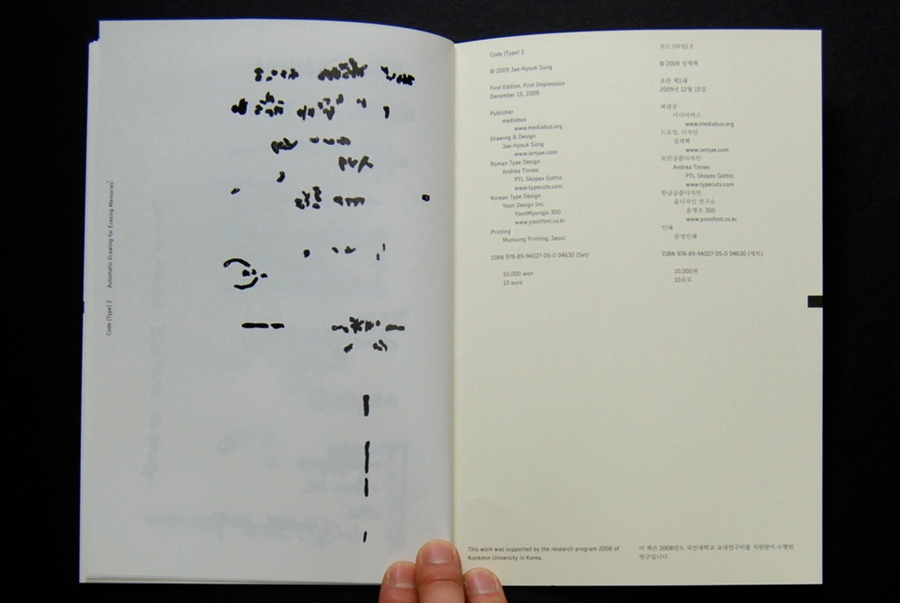 Code (Type) 2 Automatic Drawing for Erasing Memories
Code (Type) 2
© 2009 Jae-Hyouk Sung
First Edition, First Impression
December 15, 2009
Publisher
mediabus
www.mediabus.org
Drawing & Design
Jae-Hyouk Sung
www.iamjae.com
Roman Type Design
Andrea Tinnes
PTL Skopex Gothic
www.typecuts.com
Korean Type Design
Yoon Design Inc.
YoonMyungjo 300
www.yoonfont.co.kr
Printing
Munsung Printing, Seoul
ISBN 978-89-94027-05-0 04630 (Set)
10,000 won
10 euro
This work was supported by the research program 2008 of
Kookmin University in Korea.
코드 (타입) 2
© 2009 성재혁
초판 제1쇄
2009년 12월 15일
펴낸곳
미디어버스
www.mediabus.org
드로잉, 디자인
성재혁
www.iamjae.com
로만글꼴디자인
Andrea Tinnes
PTL Skopex Gothic
www.typecuts.com
한글글꼴디자인
윤디자인 연구소
윤명조 300
www.yoonfont.co.kr
인쇄
문성인쇄
ISBN 978-89-94027-05-0 04630 (세트)
10,000원
10유로
이 책은 2008년도 국민대학교 교내연구비를 지원받아 수행된
연구입니다.